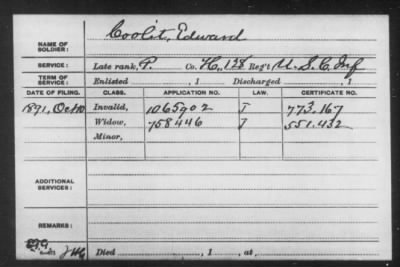 Coolit, Edward
NAME OF SOLDIER:
SERVICE: Late rank, P. Co. H, 128 Reg't U.S.C. Inf
TERM OF SERVICE: Enlisted , 1 Discharged , 1
DATE OF FILING. CLASS. APPLICATION NO. LAW. CERTIFICATE NO.
1891, Oct 10 Invalid, 1065902 J 773.167
Widow, 758446 J 551.432
Minor,
ADDITIONAL SERVICES:
REMARKS:
Died , 1 , at